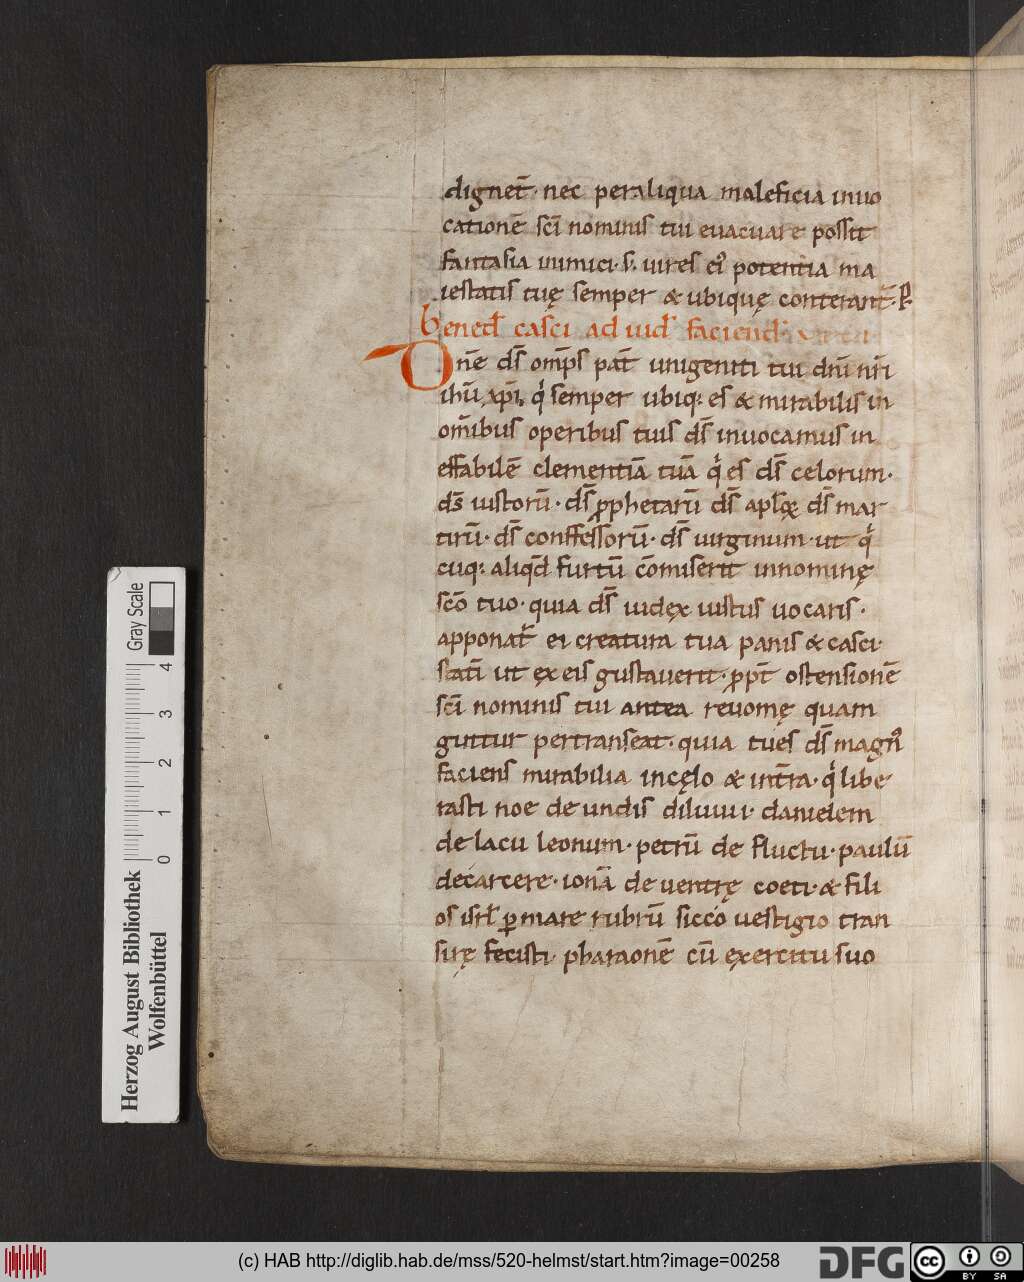 dignet̄· nec peraliqua maleficia inuo
cationē sc̄i nominis tui euacuare possit
fantasia inimici· s; uires ei' potentia ma
iestatis tuę semper & ubiquę conterant̄·
Bened̄ casci ad iud̄ faciend̄
One ds̄ omp̄s pat̄ unigeniti tui dn̄i nr̄i
ihū xp̄i, q̇ semper ubiq; es & mirabilis in
om̄ibus operibus tuis ds̄ inuocamus in
effabilē clementiā tuā q̇ es ds̄ celorum·
ds̄ iustorū· ds̄ ꝓphetarū ds̄ apl̄oꝝ ds̄ mar
tirū· ds̄ confessorū· ds̄ uirginum· ut q̇
cuq; aliqd̄ furtū cōmiserit innominę
scō tuo· quia ds̄ iudęx iustus uocaris·
apponat̄ ei creatura tua panis & casci·
statī ut ęx eis gustauerit· ꝓpt̄ ostensionē
sc̄i nominis tui antea reuomę quam
guttur pertranseat· quia tues ds̄ magn'
faciens mirabilia incęlo & int̄ra· q̇ libe
rasti noe de undis diluuii· danielem
de lacu leonum· petrū de fluctu· paulū
decarcere· ionā de uentrę coeti· & fili
os isrl̄ ꝑ mare rubrū sicco uestigio tran
sirę fecisti· pharaonē cū ęxercitu suo
Gray Scale
4 3 2 1 0
Herzog August Bibliothek
Wolfenbüttel
(c) HAB http://diglib.hab.de/mss/520-helmst/start.htm?image=00258
DFG
cc
BY SA